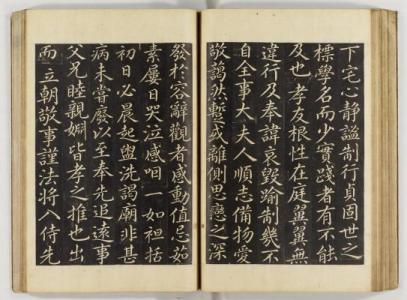 下宅心静謐制行貞固世之
標學名而少實踐者有不能
及也孝友根性在庭翼翼無
違行及奉諱哀毀踰制幾不
自全事大夫人順志備物愛
敬藹然暫或離側思戀之深
發於容辭觀者感動值忌茹
素屢日哭泣感咽一如袒括
初日必晨起盥洗謁廟非甚
病未嘗廢以至奉先追遠事
父兄睦親婣皆孝之推也出
而立朝敬事謹法將入侍先